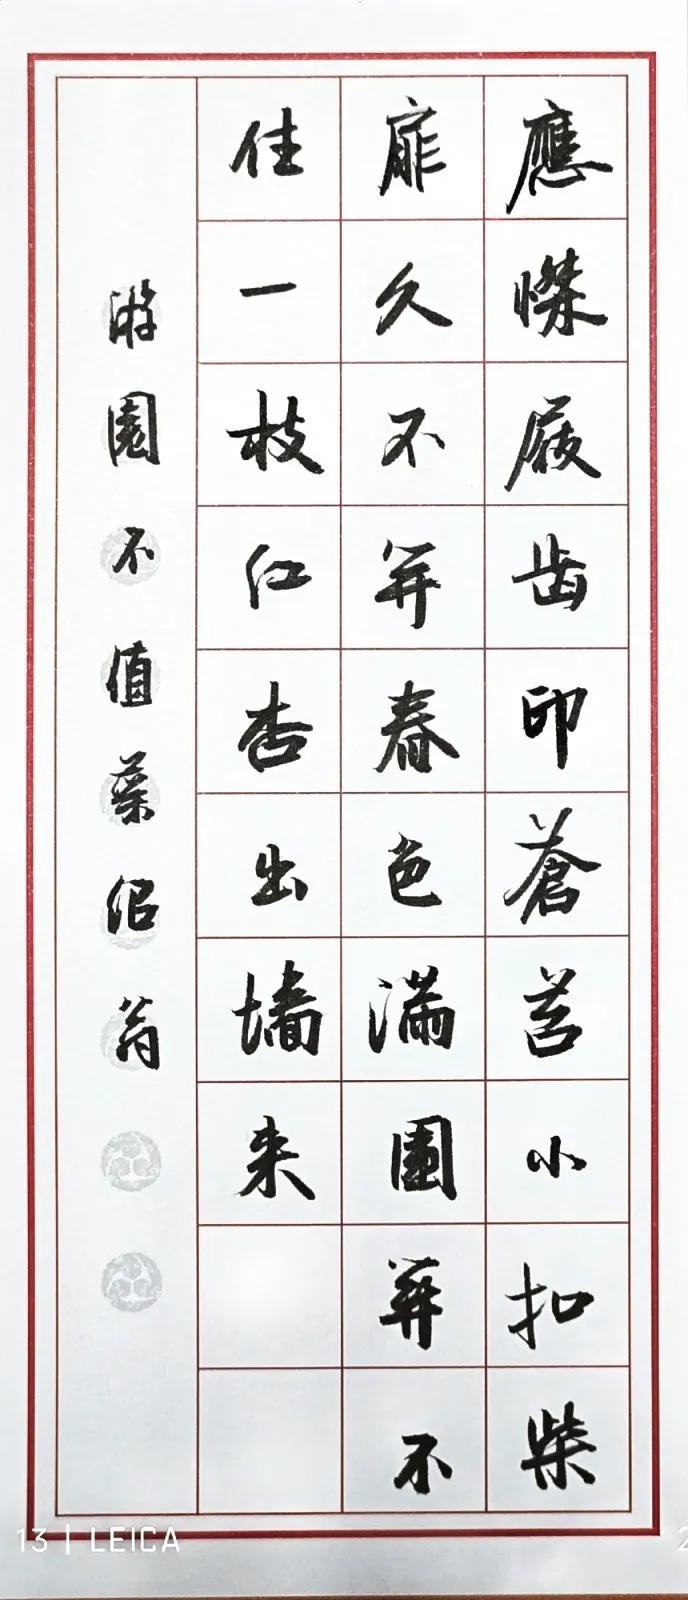 應憐屐齿印蒼苔小扣柴
扉久不开春色满園关不
住一枝红杏出墙来
游園不值葉绍翁
13 | LEICA